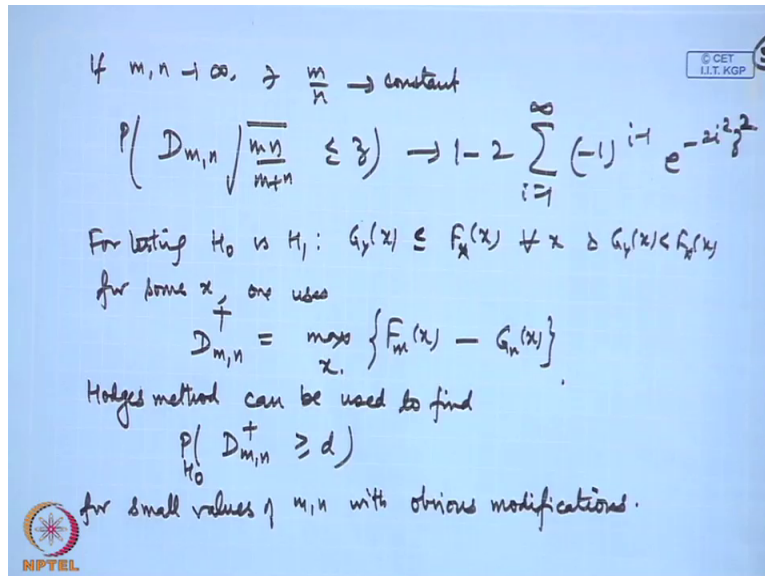 © CET
I.I.T. KGP
If m,n → ∞, ∋ m/n → constant
P( D_{m,n} √(mn/(m+n)) ≤ z) → 1 - 2 ∑_{i=1}^{∞} (-1)^{i-1} e^{-2i²z²}
For testing H₀ vs H₁: G_Y(x) ≤ F_X(x) ∀ x & G_Y(x) < F_X(x)
for some x, one uses
D⁺_{m,n} = max_x {F_m(x) - G_n(x)}
Hodges method can be used to find
P_{H₀}( D⁺_{m,n} ≥ d)
for small values of m,n with obvious modifications.
NPTEL